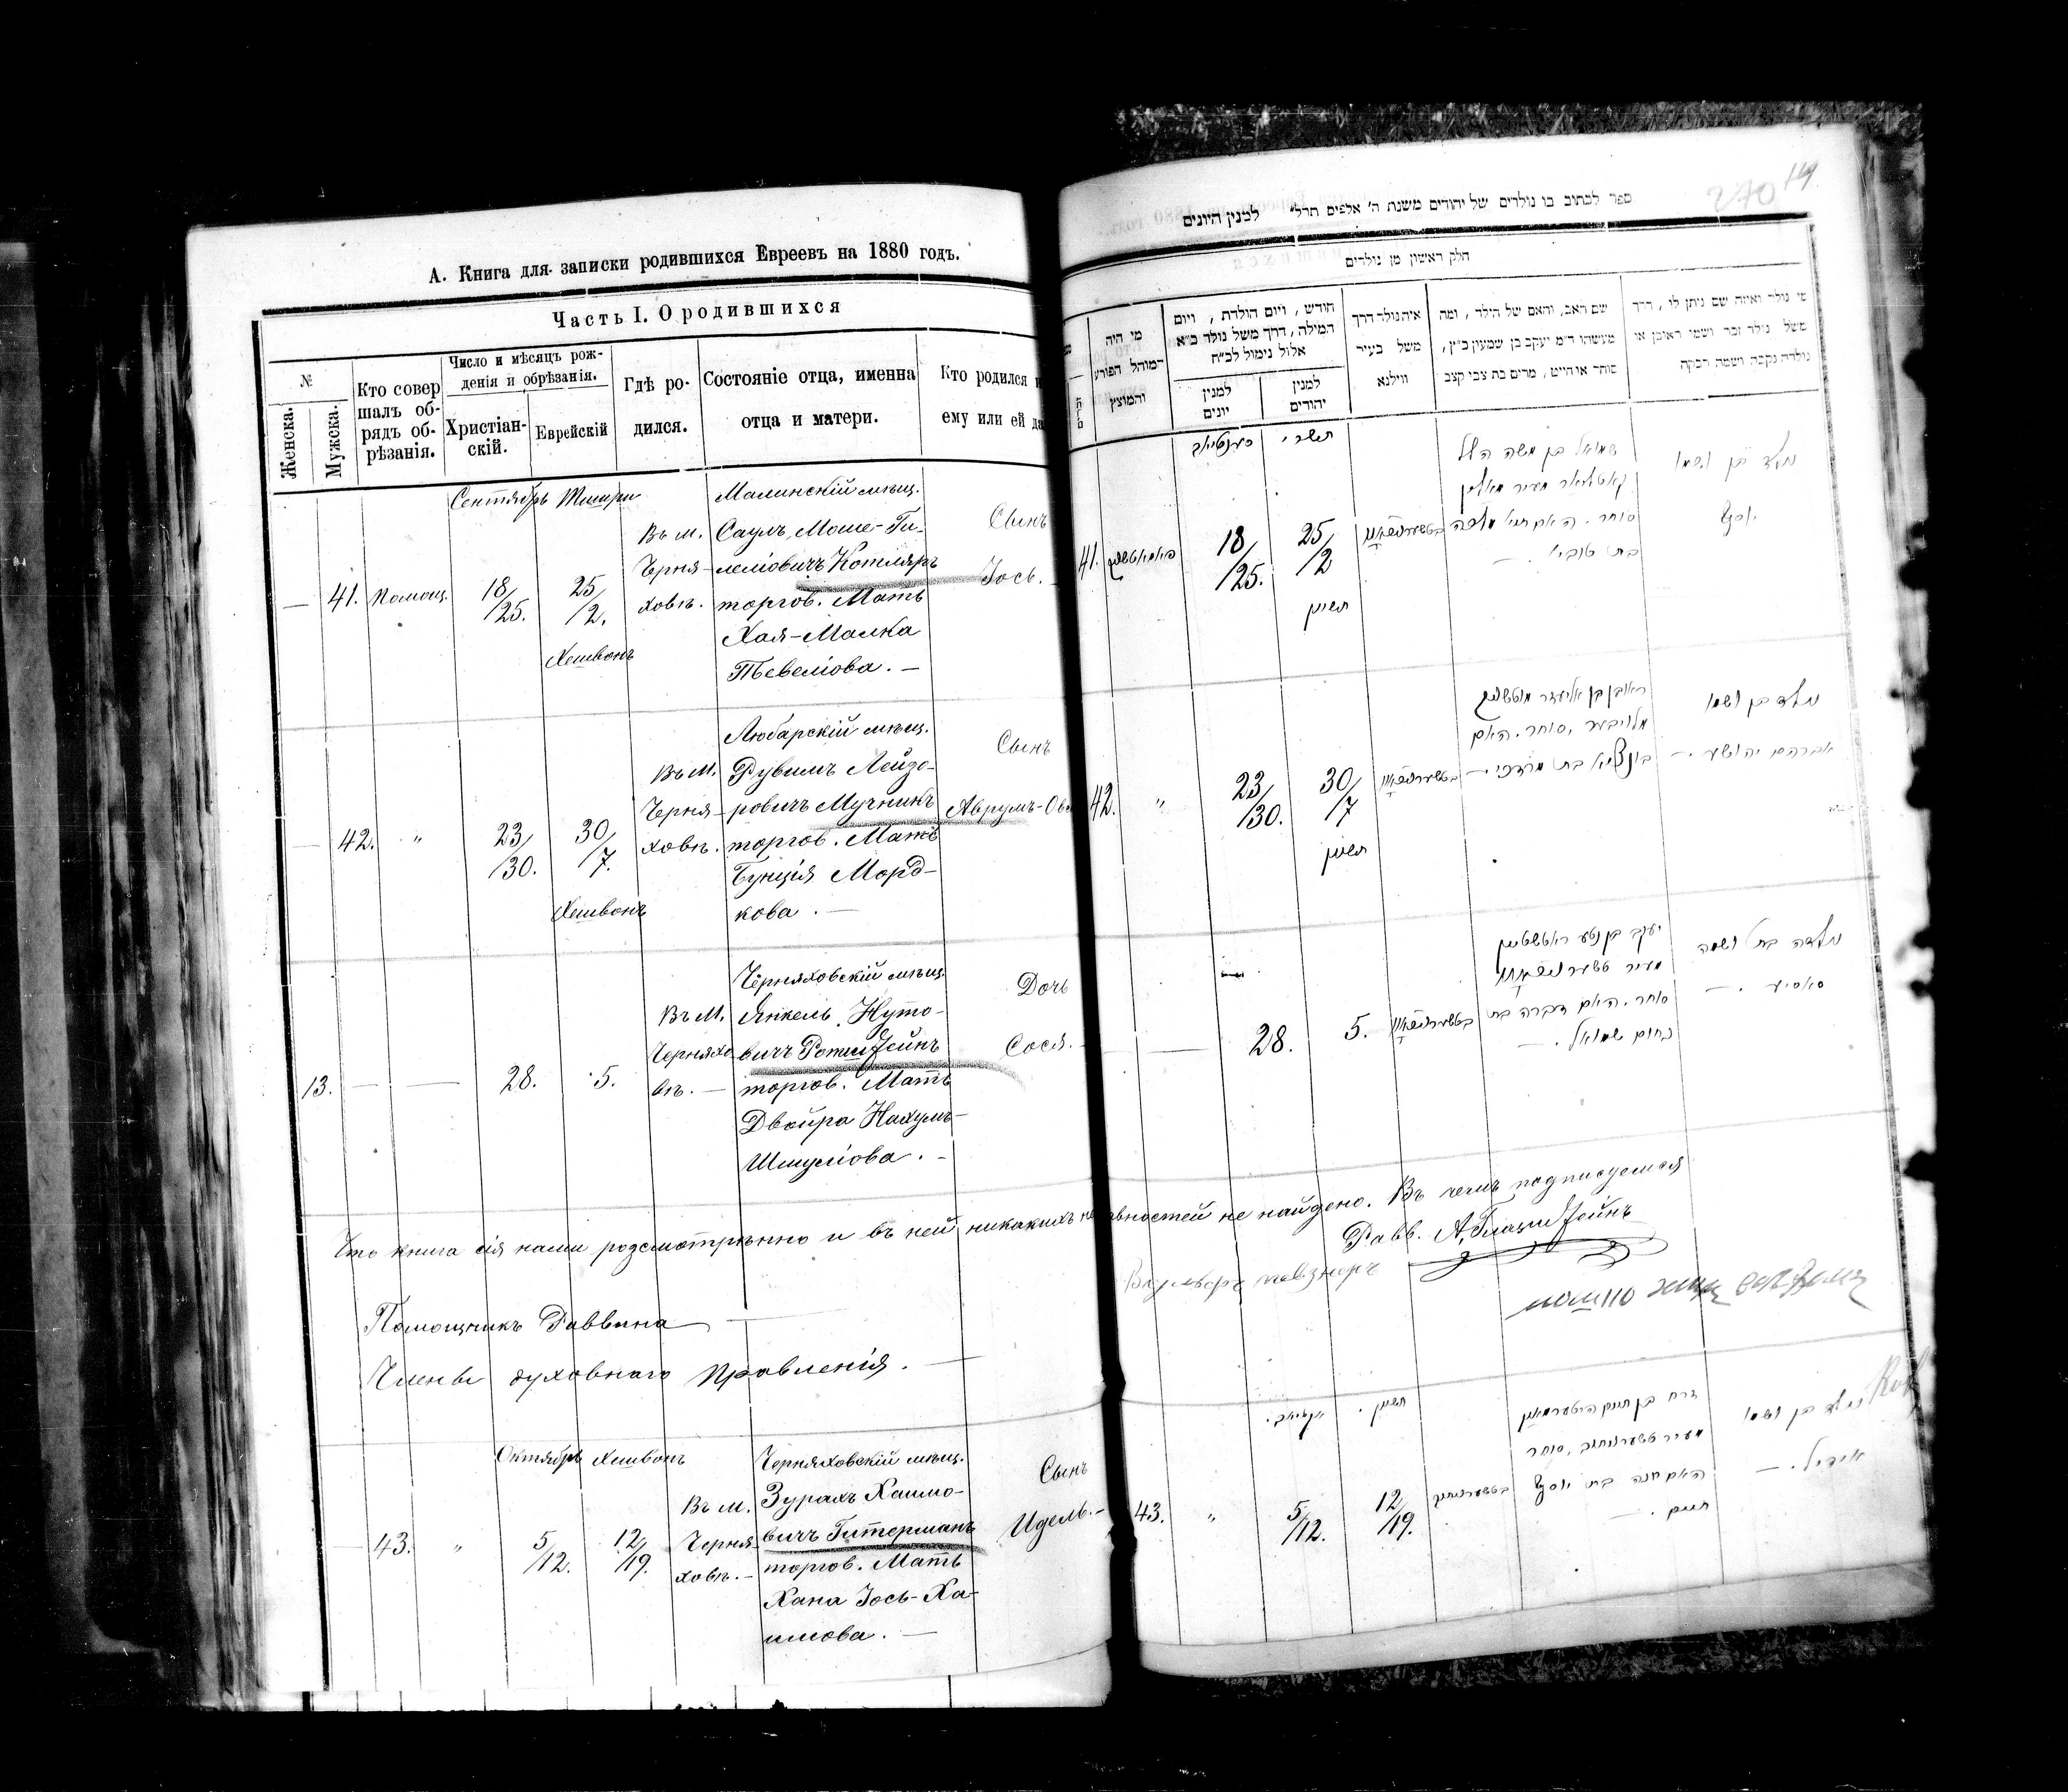 А. Книга для записки родившихся Евреевъ на 1880 годъ.
Часть I. О родившихся
№
Женска.
Мужска.
Кто совер
шалъ об-
рядъ об-
рѣзанія.
Число и мѣсяцъ рож-
денія и обрѣзанія.
Христіан-
скій.
Еврейскій
Гдѣ ро-
дился.
Состояніе отца, именна
отца и матери.
Кто родился и
ему или ей да
Сентябрь Тишри
— 41. Помощ. 18/25. 25/2.
Хешвонъ
Въ м.
Черня-
ховѣ.
Малинскій мѣщ.
Саулъ Моше-Ги-
леліовичъ Котляръ
торгов. Мать
Хая-Малка
Тевеліова. —
Сынъ
Іось. —
— 42. " 23/30. 30/7.
Хешвонъ
Въ М.
Черня-
ховѣ.
Любарскій мѣщ.
Рувимъ Лейзо-
ровичъ Мучникъ
торгов. Мать
Бунція Морд-
кова. —
Сынъ
Аврумъ-Ов
13. — — 28. 5.
Въ М.
Черняхо
вѣ. —
Черняховскій мѣщ.
Янкель Нуто-
вичъ Ротштейнъ
торгов. Мать
Двойра Нахумъ-
Шмуліова. -
Дочь
Сося. -
Что книга сія нами розсмотрѣнно и въ ней никакихъ не авностей не найдено. Въ чемъ подписуемся
Равв. А.
Помощникъ Раввина —
Члены духовнаго Правленія. —
Октябрь Хешвонъ
— 43. " 5/12. 12/19.
Въ м.
Черня
ховѣ. —
Черняховскій мѣщ.
Зурахъ Хаимо-
вичъ Гитерманъ
торгов. Мать
Хана Іось-Ха-
имова. —
Сынъ
Идель. -
270 119
ספר לכתוב בו נולדים של יהודים משנת ה' אלפים תר"ל למנין היונים
חלק ראשון מן נולדים
מי היה
המוהל הפורע
והמוצץ
חודש, ויום הולדת, ויום
המילה, דרך משל נולד כ"א
אלול נימול לכ"ח
למנין
יונים
למנין
יהודים
איה נולד דרך
משל בעיר
ווילנא
שם האב, והאם של הילד, ומה
מעשהו ד"מ יעקב בן שמעון כ"ץ,
סוחר או חייט, מרים בת צבי קצב
מי נולד ואיזה שם ניתן לו, דרך
משל נולד זכר ושמו ראובן או
נולדה נקבה ושמה רבקה
סענטיאב תשרי
41. 18/25. 25/2
חשון
שמואל בן משה הלל
קאטליאר מעיר מאלין
סוחר. האם חיה מלכה
בת טובי'. —
נולד בן ושמו
יוסף
42. " 23/30. 30/7
חשון
ראובן בן אליעזר מוטשניק
מלויבער, סוחר. האם
בונציא בת מרדכי —
נולד בן ושמו
אברהם יהושע —
— 28. 5.
יעקב בן נטע ראטשטיין
סוחר. האם דברה בת
נחום שמואל. —
נולדה בת ושמה
סאסיע. —
אקטיאב. חשון.
43. " 5/12. 12/19.
זרח בן חיים היטערמאן
מעיר טשערניחוב, סוחר
האם חנה בת יוסף
חיים. —
נולד בן ושמו
אידיל. —